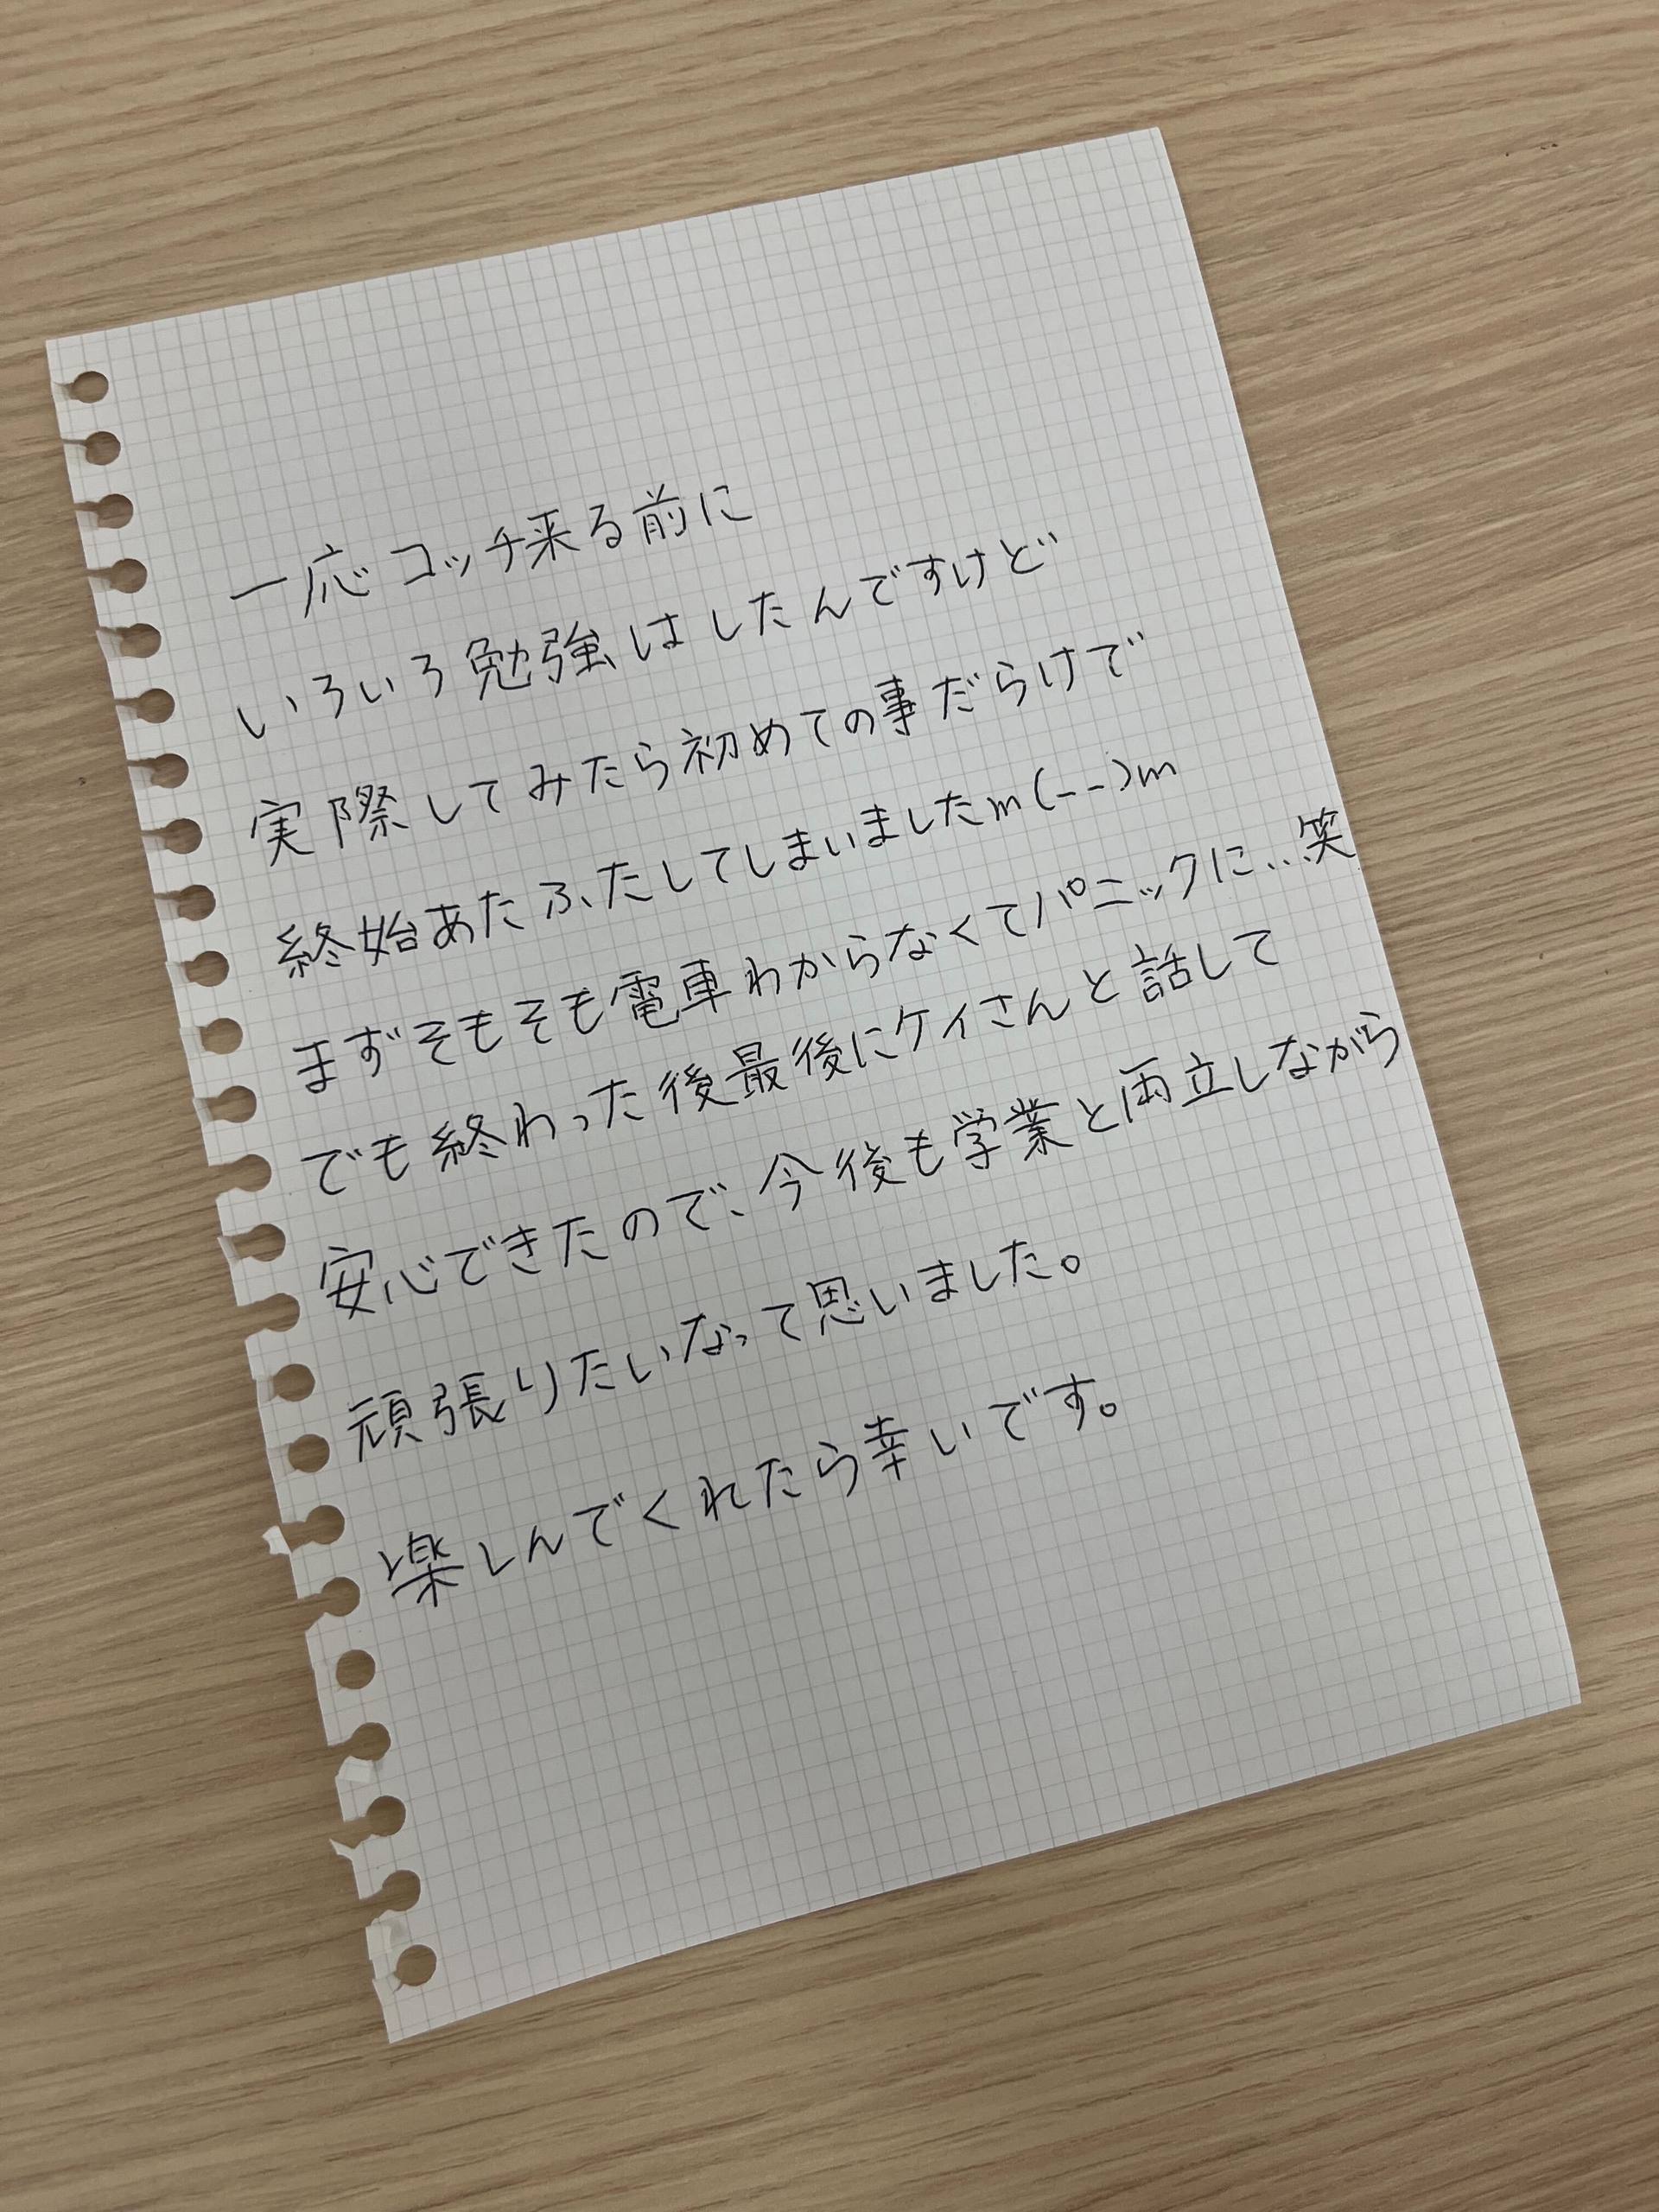 一応コッチ来る前に
いろいろ勉強はしたんですけど
実際してみたら初めての事だらけで
終始あたふたしてしまいましたm(--)m
まずそもそも電車わからなくてパニックに...笑
でも終わった後最後にケイさんと話して
安心できたので、今後も学業と両立しながら
頑張りたいなって思いました。
楽しんでくれたら幸いです。